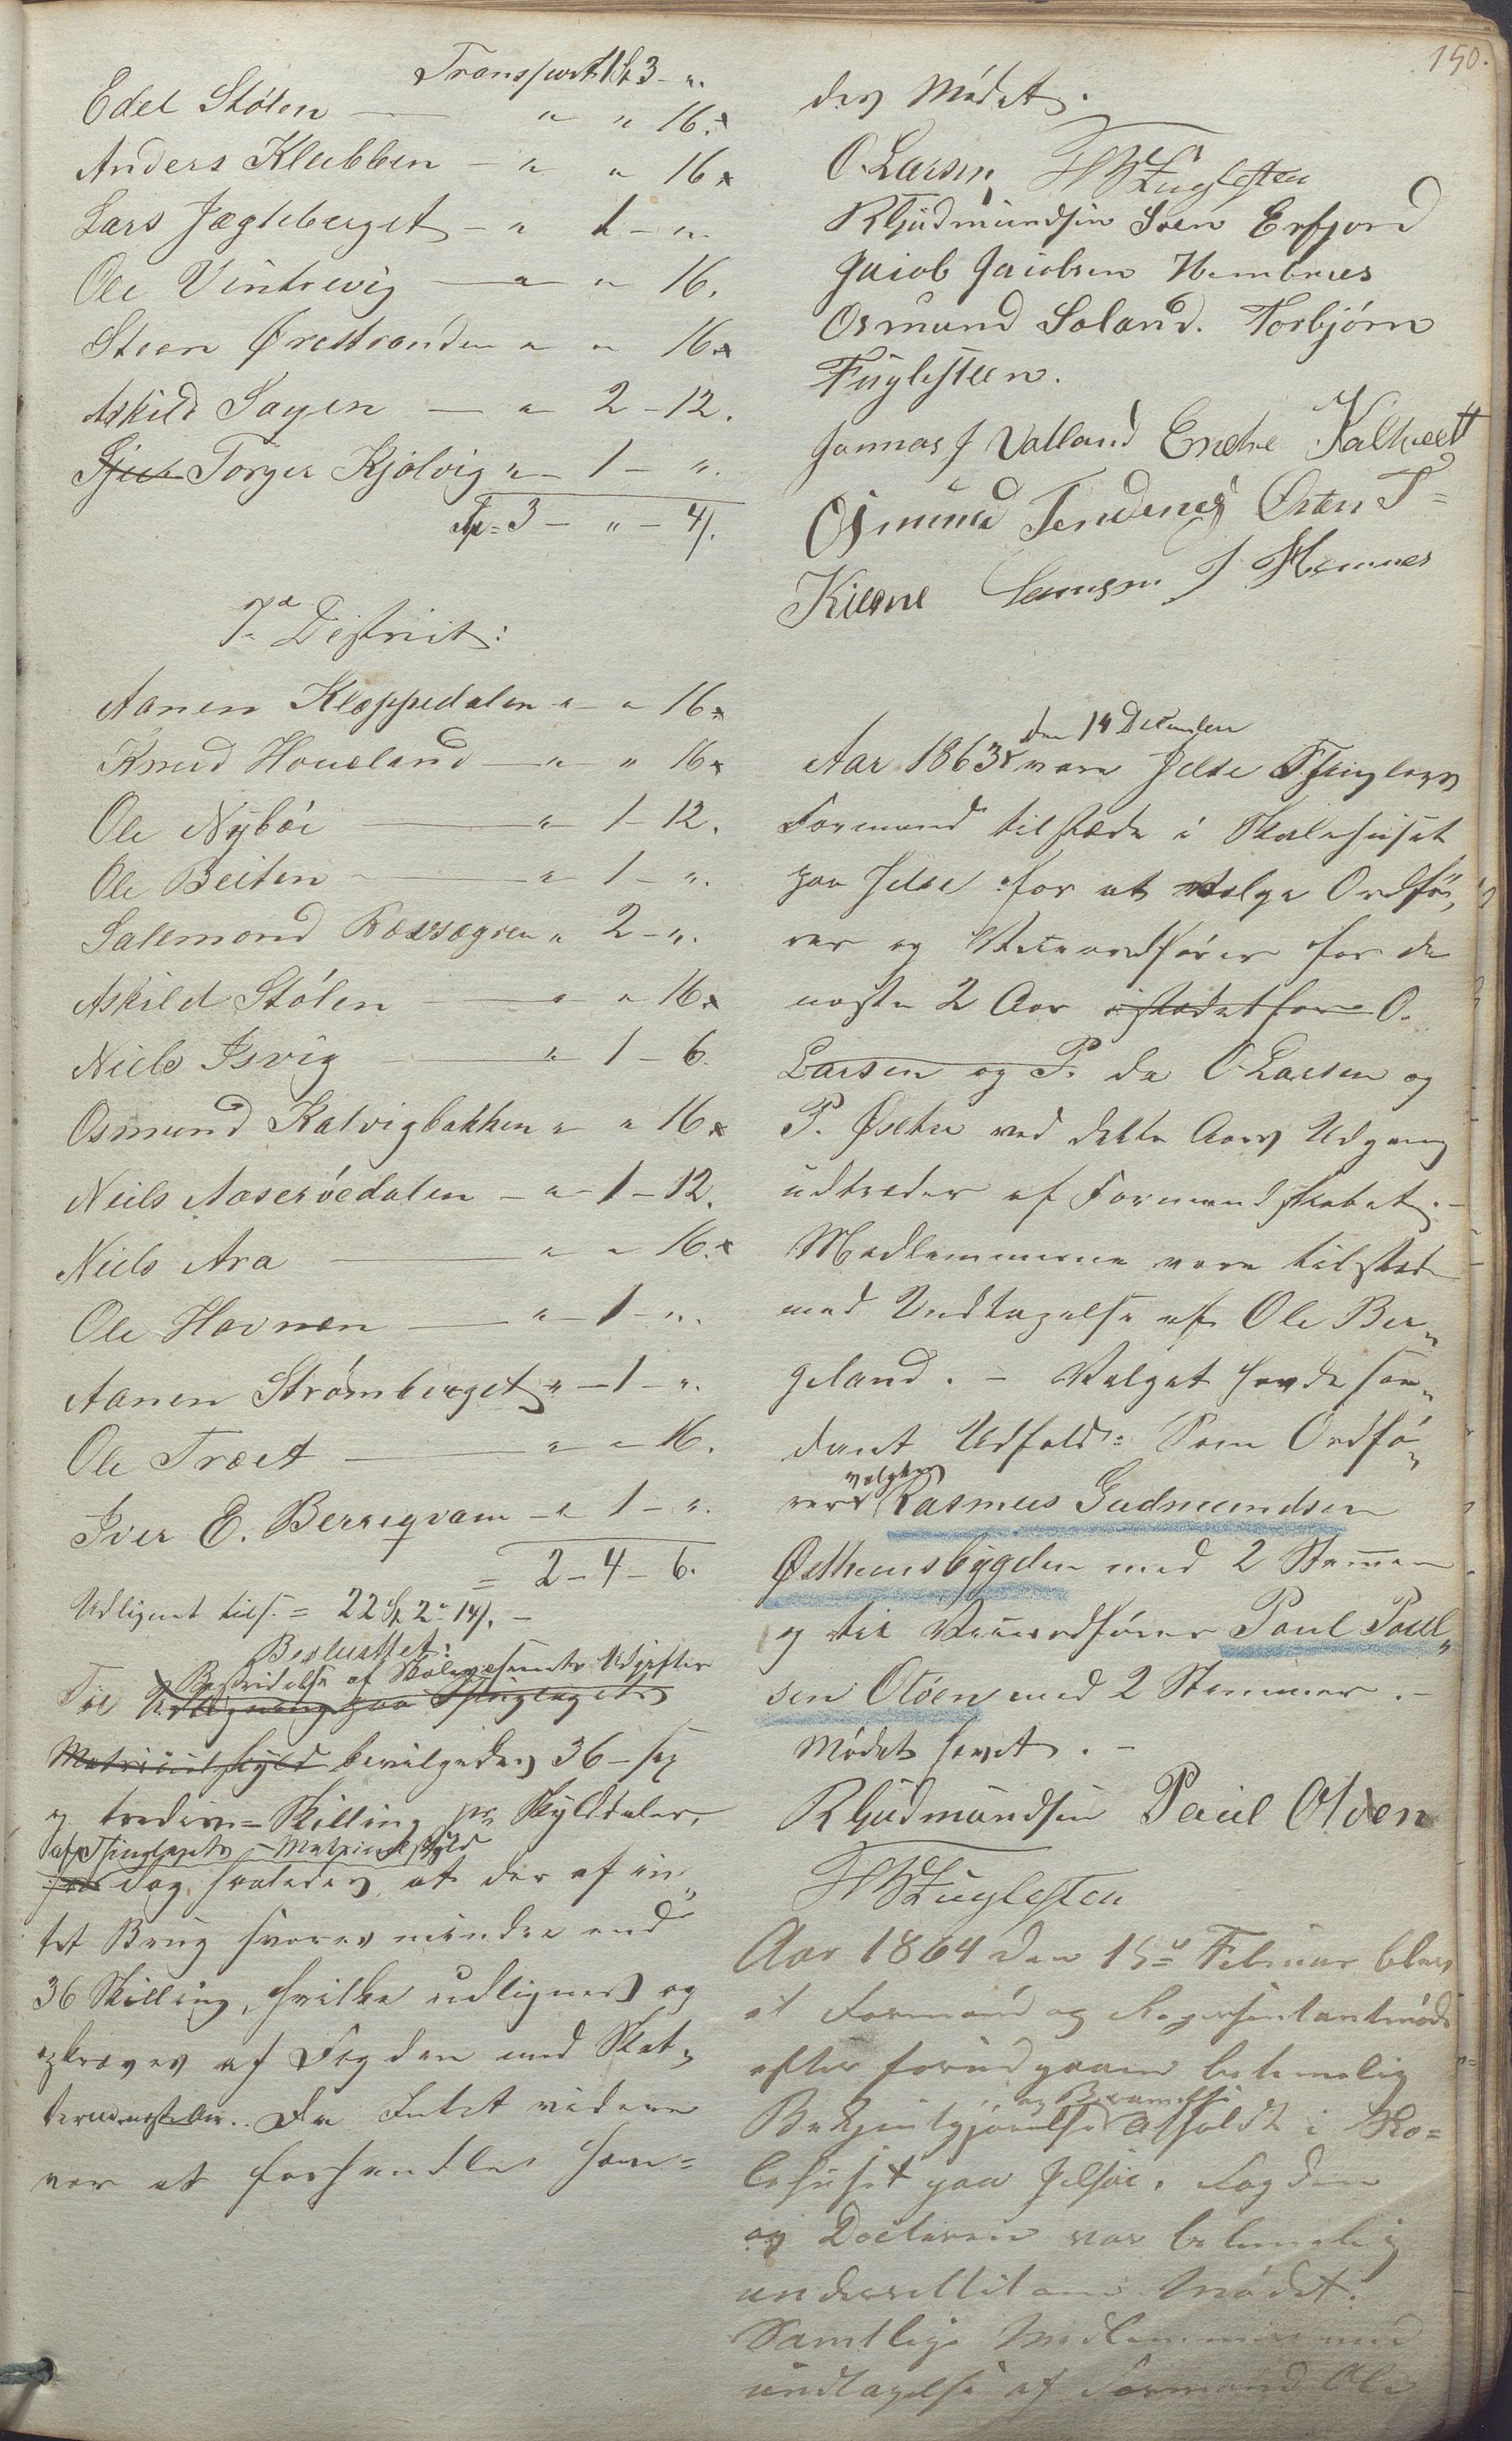 150.
Transport 1 Sp 3 - "
Edel Stølen — " " 16.
Anders Klubben — " " 16
Lars Jægteberget — " 1 - "
Ole Vintrevig — " " 16.
Steen Ørestranden " " 16
Askild Sagen — " 2 - 12.
Torger Kjølvig " - 1 - ".
Sp = 3 - " - 4 /.
7de District:
Aanen Kleppedalen " - " 16
Knud Houeland — " " 16
Ole Nybøe — " 1 - 12.
Ole Beiten — " 1 - ".
Salemond " 2 - ".
Askild Stólen — " " 16
Niels Isvig — " 1 - 6.
Osmund Kalvigbakken " " 16
Neils Aaserøedalen - " - 1 - 12.
Niels Ara — " " 16.
Ole Havnen — " - 1 - ".
Aanen Strømberget " - 1 - ".
Ole Træet — " - " 16.
Iver E. Berreqvam - " 1 - ".
= 2 - 4 - 6.
Udlignet tils. = 22 Sp 2 " 14 /. -
Besluttet:
Bestridelse af Skolevæsenets Udgifter
Til Udligning paa Thinglagets
Matriculskyld bevilgedes 36 - sex
og tredive = Skilling pr Skylddaler,
af Thinglagets Matriculskyld
dog saaledes at der af in„
tet Brug svares mindre end
36 Skilling, hvilke udlignes og
opkræves af Fogden med Skat„
terne. Da Intet videre
var at forhandle hæve =
des Mødet.
O. Larsen Fuglesten
RGudmundsen Sven Erfjord
Jacob Jacobsen Hembnes
Osmund Soland. Torbjørn
Fuglesteen.
Jonnas J Valland Endre Kaltveet
Osmund Tendenes Østen T =
Kilene Samson J Hemnes
den 14 December
Aar 1863 vare Jelse Thinglags
Formænd tilstæde i Skolehuset
paa Jelse for at vælge Ordfø„
rer og Viceordfører for de
næste 2 Aar istedetfor O.
Larsen og P. da O Larsen og
P. Østhu ved dette Aars Udgang
udtræder af Formandskabet. -
Medlemmerne vare tilstede
med Undtagelse af Ole Ber„
geland. - Valget havde saa„
dant Udfald: Som Ordfø„
valgtes
rer Rasmus Gudmundsen
Østhusbygden med 2 Stemmer
og til Viceordfører Poul Poul„
sen Otøen med 2 Stemmer. -
Mødet hævet. -
RGudmundsen Paul Otøen
Fuglesten
Aar 1864 den 15de Februar blev
et Formænd og Repræsentantmøde
efter forudgaaen betimelig
og Berammelse
Bekjentgjørelse afholdt i Sko =
lehuset paa Jelsøe. Fogden
og Doctoren var betimelig
underrettet om Mødet.
Samtlige Medlemmer med
undtagelse af Formand Ole